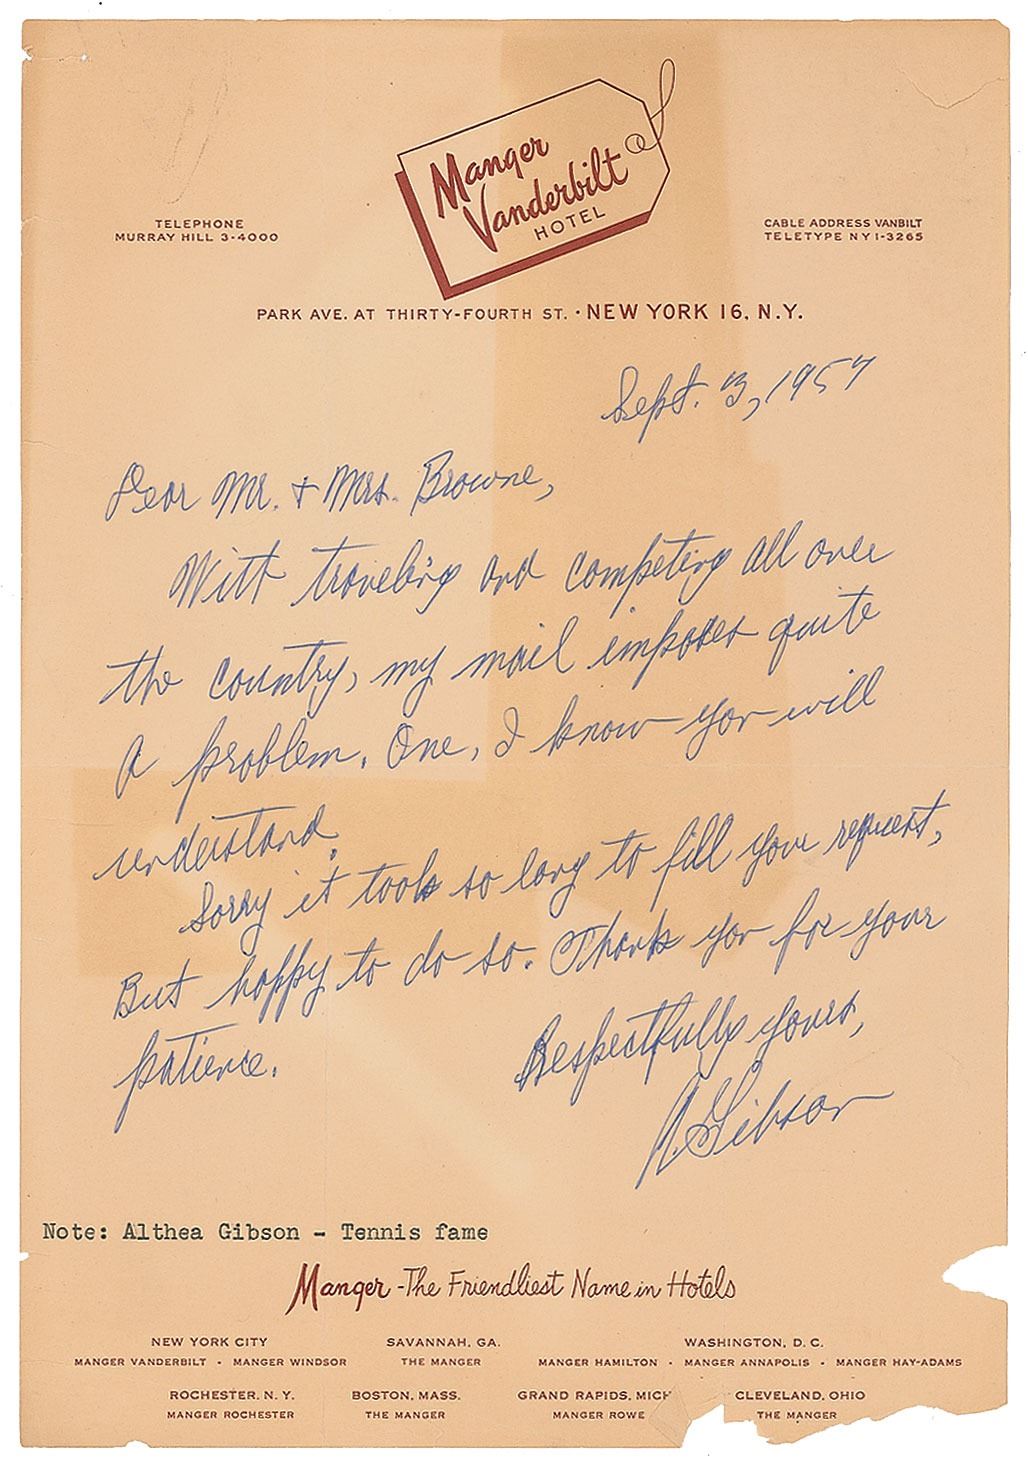 Manger
Vanderbilt
HOTEL
TELEPHONE
MURRAY HILL 3-4000
CABLE ADDRESS VANBILT
TELETYPE NY 1-3265
PARK AVE. AT THIRTY-FOURTH ST. · NEW YORK 16, N.Y.
Sept. 3, 1957
Dear Mr. + Mrs. Browne,
With traveling and competing all over
the country, my mail imposes quite
a problem. One, I know you will
understand.
Sorry it took so long to fill your request,
But happy to do so. Thank you for your
patience.
Respectfully yours,
A Gibson
Note: Althea Gibson - Tennis fame
Manger - The Friendliest Name in Hotels
NEW YORK CITY
MANGER VANDERBILT · MANGER WINDSOR
SAVANNAH, GA.
THE MANGER
WASHINGTON, D. C.
MANGER HAMILTON · MANGER ANNAPOLIS · MANGER HAY-ADAMS
ROCHESTER, N. Y.
MANGER ROCHESTER
BOSTON, MASS.
THE MANGER
GRAND RAPIDS, MICH
MANGER ROWE
CLEVELAND, OHIO
THE MANGER